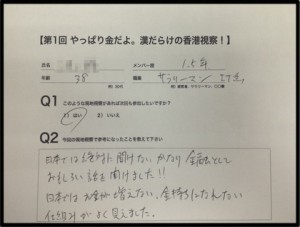 【第1回 やっぱり金だよ。漢だらけの香港視察！】
氏名 メンバー歴 1.5年
年齢 38 職業 サラリーマン
Q1 このような現地視察があれば次回も参加したいですか？
1) はい 2) いいえ
Q2 今回の現地視察で参考になったことを教えて下さい
日本では絶対に聞けない、かなり金融として
おもしろい話を聞けました!!
日本ではお金が増えない、金持ちになれない
仕組みがよく見えました。